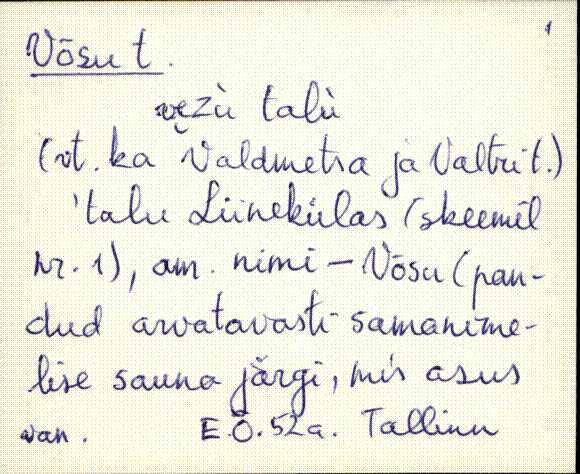 1
Võsu t.
vezù talù
(vt. ka Valdmetsa ja Valtri t.)
'talu Liinekülas (skeemil
nr. 1), am. nimi - Võsu (pan-
dud arvatavasti samanime-
lise sauna järgi, mis asus
van. E.Õ. 52a. Tallinn